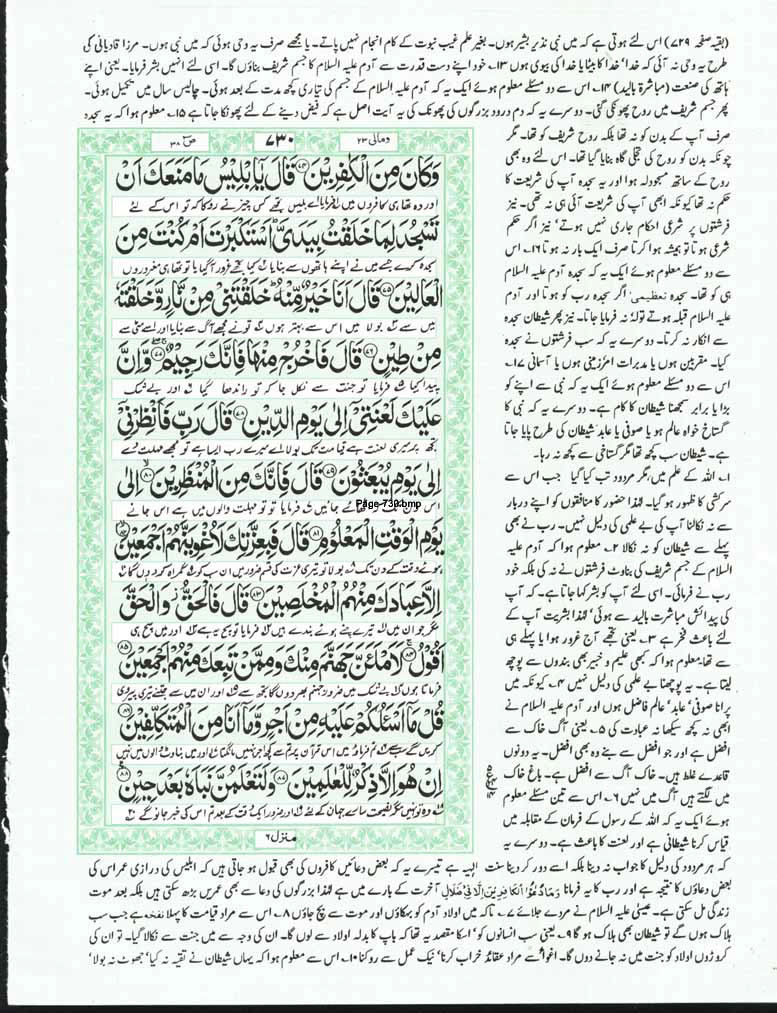 (بقیہ صفحہ ۷۲۹) اس لئے ہوتی ہے کہ میں نبی نذیر بشیر ہوں۔ بغیر علم غیب نبوت کے کام انجام نہیں پاتے۔ یا مجھے صرف یہ وحی ہوئی کہ میں نبی ہوں۔ مرزا قادیانی کی
طرح یہ وحی نہ آئی کہ خدا کا بیٹا یا خدا کی بیوی ہوں ۱۳۔ خود اپنے دست قدرت سے آدم علیہ السلام کا جسم شریف بناؤں گا۔ اسی لئے انہیں بشر فرمایا۔ یعنی اپنے
ہاتھ کی صنعت (مباشرۃ بالید) ۱۴۔ اس سے دو مسئلے معلوم ہوئے ایک یہ کہ آدم علیہ السلام کے جسم کی تیاری کچھ مدت کے بعد ہوئی۔ چالیس سال میں تکمیل ہوئی۔
پھر جسم شریف میں روح پھونکی گئی۔ دوسرے یہ کہ دم درود بزرگوں کی پھونک کی یہ آیت اصل ہے کہ فیض دینے کے لئے پھونکا جاتا ہے ۱۵۔ معلوم ہوا کہ یہ سجدہ
صرف آپ کے بدن کو نہ تھا بلکہ روح شریف کو تھا۔ مگر
چونکہ بدن کو روح کی تجلی گاہ بنایا گیا تھا۔ اس لئے وہ بھی
روح کے ساتھ مسجود لہ ہوا اور یہ سجدہ آپ کی شریعت کا
حکم نہ تھا کیونکہ ابھی آپ کی شریعت آئی ہی نہ تھی۔ نیز
فرشتوں پر شرعی احکام جاری نہیں ہوتے' نیز اگر حکم
شرعی ہوتا تو ہمیشہ ہوا کرتا صرف ایک بار نہ ہوتا ۱۶۔ اس
سے دو مسئلے معلوم ہوئے ایک یہ کہ سجدہ آدم علیہ السلام
ہی کو تھا۔ سجدہ تعظیمی۔ اگر سجدہ رب کو ہوتا اور آدم
علیہ السلام قبلہ ہوتے تو لہٗ نہ فرمایا جاتا۔ نیز پھر شیطان سجدہ
سے انکار نہ کرتا۔ دوسرے یہ کہ سب فرشتوں نے سجدہ
کیا۔ مقربین ہوں یا مدبرات امر زمینی ہوں یا آسمانی ۱۷۔
اس سے دو مسئلے معلوم ہوئے ایک یہ کہ نبی سے اپنے کو
بڑا یا برابر سمجھنا شیطان کا کام ہے۔ دوسرے یہ کہ نبی کا
گستاخ خواہ عالم ہو یا صوفی یا عابد شیطان کی طرح پایا جاتا
ہے۔ شیطان سب کچھ تھا مگر گستاخی سے کچھ نہ رہا۔
۱۔ اللہ کے علم میں، مگر مردود تب کیا گیا جب اس سے
سرکشی کا ظہور ہو گیا۔ لہٰذا حضور کا منافقوں کو اپنے دربار
سے نہ نکالنا آپ کی بے علمی کی دلیل نہیں۔ رب نے بھی
پہلے سے شیطان کو نہ نکالا ۲۔ معلوم ہوا کہ آدم علیہ
السلام کے جسم شریف کی بناوٹ فرشتوں نے نہ کی بلکہ خود
رب نے فرمائی۔ اسی لئے آپ کو بشر کہا جاتا ہے۔ کہ آپ
کی پیدائش مباشرت بالید سے ہوئی' لہٰذا بشریت آپ کے
لئے باعث فخر ہے ۳۔ یعنی تجھے آج غرور ہوا یا پہلے ہی
سے تھا۔ معلوم ہوا کہ کبھی علیم و خبیر بھی بندوں سے پوچھ
لیتا ہے۔ یہ پوچھنا بے علمی کی دلیل نہیں ۴۔ کیونکہ میں
پرانا صوفی' عابد' عالم فاضل ہوں اور آدم علیہ السلام نے
ابھی نہ کچھ سیکھا نہ عبادت کی ۵۔ یعنی آگ خاک سے
افضل ہے اور جو افضل سے بنے وہ بھی افضل۔ یہ دونوں
قاعدے غلط ہیں۔ خاک آگ سے افضل ہے۔ باغ خاک
میں لگتے ہیں آگ میں نہیں ۶۔ اس سے تین مسئلے معلوم
ہوئے ایک یہ کہ اللہ کے رسول کے فرمان کے مقابلہ میں
قیاس کرنا شیطانی ہے اور لعنت کا باعث ہے۔ دوسرے یہ
ومالی ۲۳
۷۳۰
صٓ ۳۸
وَكَانَ مِنَ الْكٰفِرِیْنَ ﴿۷۴﴾ قَالَ یٰۤاِبْلِیْسُ مَا مَنَعَكَ اَنْ
اور وہ تھا ہی کافروں میں فرمایا اے ابلیس تجھے کس چیز نے روکا کہ تو اس کے لئے
تَسْجُدَ لِمَا خَلَقْتُ بِیَدَیَّ ؕ اَسْتَكْبَرْتَ اَمْ كُنْتَ مِنَ
سجدہ کرے جسے میں نے اپنے ہاتھوں سے بنایا کیا تجھے غرور آ گیا یا تو تھا ہی مغروروں
الْعَالِیْنَ ﴿۷۵﴾ قَالَ اَنَا خَیْرٌ مِّنْهُ ؕ خَلَقْتَنِیْ مِنْ نَّارٍ وَّ خَلَقْتَهٗ
میں سے بولا میں اس سے بہتر ہوں تو نے مجھے آگ سے بنایا اور اسے مٹی سے
مِنْ طِیْنٍ ﴿۷۶﴾ قَالَ فَاخْرُجْ مِنْهَا فَاِنَّكَ رَجِیْمٌ ﴿۷۷﴾ وَّ اِنَّ
پیدا کیا فرمایا تو جنت سے نکل جا کہ تو راندھا گیا اور بے شک
عَلَیْكَ لَعْنَتِیْۤ اِلٰى یَوْمِ الدِّیْنِ ﴿۷۸﴾ قَالَ رَبِّ فَاَنْظِرْنِیْۤ
تجھ پر میری لعنت ہے قیامت تک بولا اے میرے رب ایسا ہے تو مجھے مہلت دے
اِلٰى یَوْمِ یُبْعَثُوْنَ ﴿۷۹﴾ قَالَ فَاِنَّكَ مِنَ الْمُنْظَرِیْنَ ﴿۸۰﴾ اِلٰى
اس دن تک کہ اٹھائے جائیں فرمایا تو تو مہلت والوں میں ہے اس جانے
Page-730.bmp
یَوْمِ الْوَقْتِ الْمَعْلُوْمِ ﴿۸۱﴾ قَالَ فَبِعِزَّتِكَ لَاُغْوِیَنَّهُمْ اَجْمَعِیْنَ ﴿۸۲﴾
ہوئے وقت کے دن تک بولا تو تیری عزت کی قسم ضرور میں ان سب کو گمراہ کر دوں گا
اِلَّا عِبَادَكَ مِنْهُمُ الْمُخْلَصِیْنَ ﴿۸۳﴾ قَالَ فَالْحَقُّ ؗ وَ الْحَقَّ
مگر جو ان میں تیرے چنے ہوئے بندے ہیں فرمایا تو سچ یہ ہے اور میں سچ ہی
اَقُوْلُ ﴿۸۴﴾ لَاَمْلَـَٔنَّ جَهَنَّمَ مِنْكَ وَ مِمَّنْ تَبِعَكَ مِنْهُمْ اَجْمَعِیْنَ ﴿۸۵﴾
فرماتا ہوں بے شک میں ضرور جہنم بھر دوں گا تجھ سے اور ان میں سے جتنے تیری پیروی
قُلْ مَاۤ اَسْـَٔلُكُمْ عَلَیْهِ مِنْ اَجْرٍ وَّ مَاۤ اَنَا مِنَ الْمُتَكَلِّفِیْنَ ﴿۸۶﴾
کریں گے سب سے تم فرماؤ میں اس قرآن پر تم سے کچھ اجر نہیں مانگتا اور میں بناوٹ والوں میں نہیں
اِنْ هُوَ اِلَّا ذِكْرٌ لِّلْعٰلَمِیْنَ ﴿۸۷﴾ وَ لَتَعْلَمُنَّ نَبَاَهٗ بَعْدَ حِیْنٍ ﴿۸۸﴾
وہ تو نہیں مگر نصیحت سارے جہان کے لئے اور ضرور ایک وقت کے بعد تم اس کی خبر جانو گے
منزل ۶
کہ ہر مردود کی دلیل کا جواب نہ دینا بلکہ اسے دور کر دینا سنت الٰہیہ ہے تیسرے یہ کہ بعض دعائیں کافروں کی بھی قبول ہو جاتی ہیں کہ ابلیس کی درازی عمر اس کی
بعض دعاؤں کا نتیجہ ہے اور رب کا یہ فرمانا وَمَا دُعٰٓؤُا الْکٰفِرِیْنَ اِلَّا فِیْ ضَلٰلٍ آخرت کے بارے میں ہے لہٰذا بزرگوں کی دعا سے بھی عمریں بڑھ سکتی ہیں بلکہ بعد موت
زندگی مل سکتی ہے۔ عیسیٰ علیہ السلام نے مردے جلائے ۷۔ تاکہ میں اولاد آدم کو بہکاؤں اور موت سے بچ جاؤں ۸۔ اس سے مراد قیامت کا پہلا نفخہ ہے جب سب
ہلاک ہوں گے تو شیطان بھی ہلاک ہو گا ۹۔ یعنی سب انسانوں کو' اسکا مقصد یہ تھا کہ باپ کا بدلہ اولاد سے لوں گا۔ ان کی وجہ سے میں جنت سے نکالا گیا۔ تو ان کی
کروڑوں اولاد کو جنت میں نہ جانے دوں گا۔ اغوا سے مراد عقائد خراب کرنا' نیک عمل سے روکنا ۱۰۔ اس سے معلوم ہوا کہ یہاں شیطان نے تقیہ نہ کیا' جھوٹ نہ بولا'